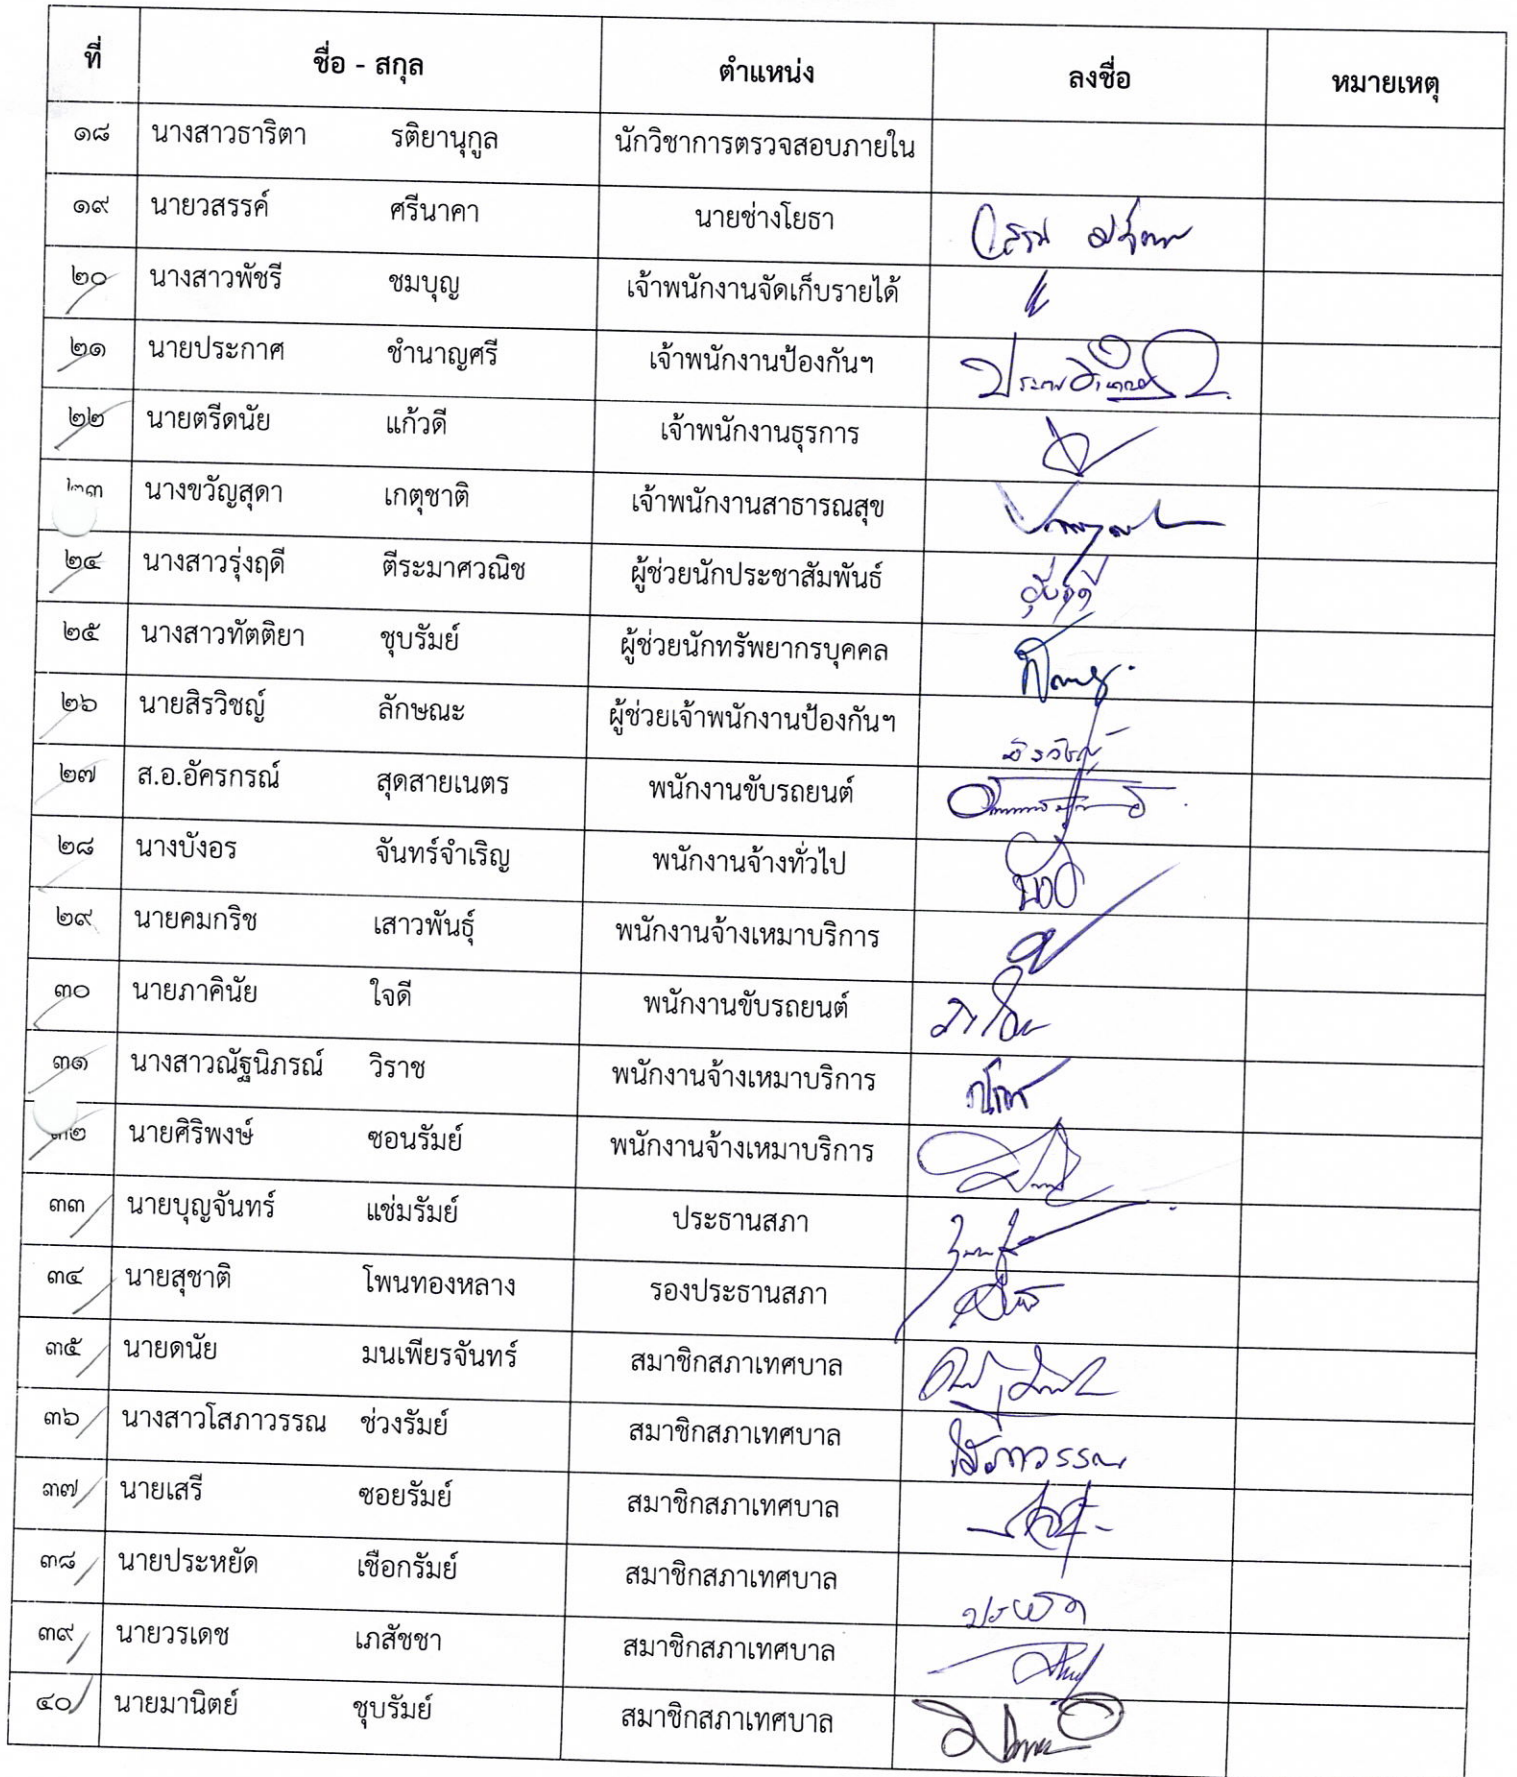 ที่ ชื่อ - สกุล ตำแหน่ง ลงชื่อ หมายเหตุ
๑๘ นางสาวธาริตา รติยานุกูล นักวิชาการตรวจสอบภายใน
๑๙ นายวสรรค์ ศรีนาคา นายช่างโยธา
๒๐ นางสาวพัชรี ชมบุญ เจ้าพนักงานจัดเก็บรายได้
๒๑ นายประกาศ ชำนาญศรี เจ้าพนักงานป้องกันฯ
๒๒ นายตรีดนัย แก้วดี เจ้าพนักงานธุรการ
๒๓ นางขวัญสุดา เกตุชาติ เจ้าพนักงานสาธารณสุข
๒๔ นางสาวรุ่งฤดี ตีระมาศวณิช ผู้ช่วยนักประชาสัมพันธ์ รุ่งฤดี
๒๕ นางสาวทัตติยา ชุบรัมย์ ผู้ช่วยนักทรัพยากรบุคคล
๒๖ นายสิรวิชญ์ ลักษณะ ผู้ช่วยเจ้าพนักงานป้องกันฯ สิรวิชญ์
๒๗ ส.อ.อัครกรณ์ สุดสายเนตร พนักงานขับรถยนต์
๒๘ นางบังอร จันทร์จำเริญ พนักงานจ้างทั่วไป
๒๙ นายคมกริช เสาวพันธุ์ พนักงานจ้างเหมาบริการ
๓๐ นายภาคินัย ใจดี พนักงานขับรถยนต์
๓๑ นางสาวณัฐนิภรณ์ วิราช พนักงานจ้างเหมาบริการ
๓๒ นายศิริพงษ์ ซอนรัมย์ พนักงานจ้างเหมาบริการ
๓๓ นายบุญจันทร์ แช่มรัมย์ ประธานสภา
๓๔ นายสุชาติ โพนทองหลาง รองประธานสภา
๓๕ นายดนัย มนเพียรจันทร์ สมาชิกสภาเทศบาล
๓๖ นางสาวโสภาวรรณ ช่วงรัมย์ สมาชิกสภาเทศบาล โสภาวรรณ
๓๗ นายเสรี ซอยรัมย์ สมาชิกสภาเทศบาล
๓๘ นายประหยัด เชือกรัมย์ สมาชิกสภาเทศบาล ประหยัด
๓๙ นายวรเดช เภสัชชา สมาชิกสภาเทศบาล
๔๐ นายมานิตย์ ชุบรัมย์ สมาชิกสภาเทศบาล